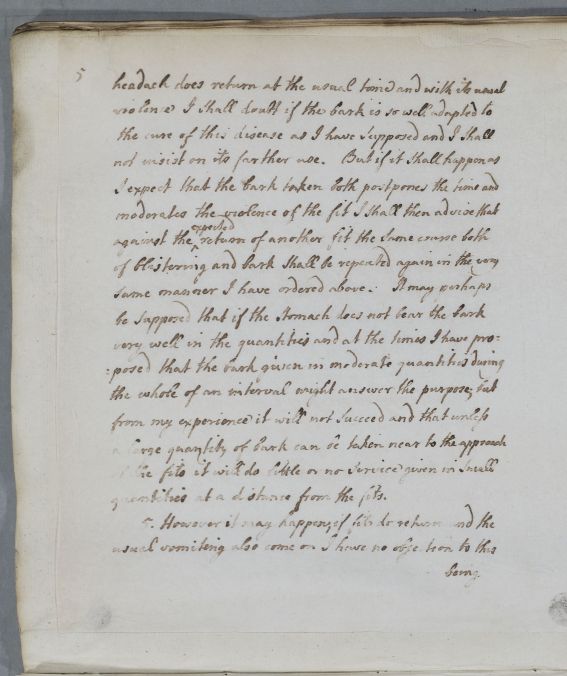 5
headach does return at the usual time and with its usual
violence I shall doubt if the bark is so well adapted to
the cure of this disease as I have Supposed and I shall
not insist on its farther use. But if it shall happen as
I expect that the bark taken both postpones the time and
moderates the violence of the fit I shall then advise that
against the expected return of another fit the Same course both
of blistering and bark Shall be repeated again in the very
Same manner I have ordered above. It may perhaps
be Supposed that if the Stomach does not bear the bark
very well in the quantities and at the times I have pro=
=posed that the bark given in moderate quantities during
the whole of an interval might answer the purpose; but
from my experience it will not Succeed and that unless
a large quantity of bark can be taken near to the approach
of the fits it will do little or no Service given in Small
quantities at a distance from the fits.
5. However it may happen, if fits do return and the
usual vomiting also come on I have no objection to this
being